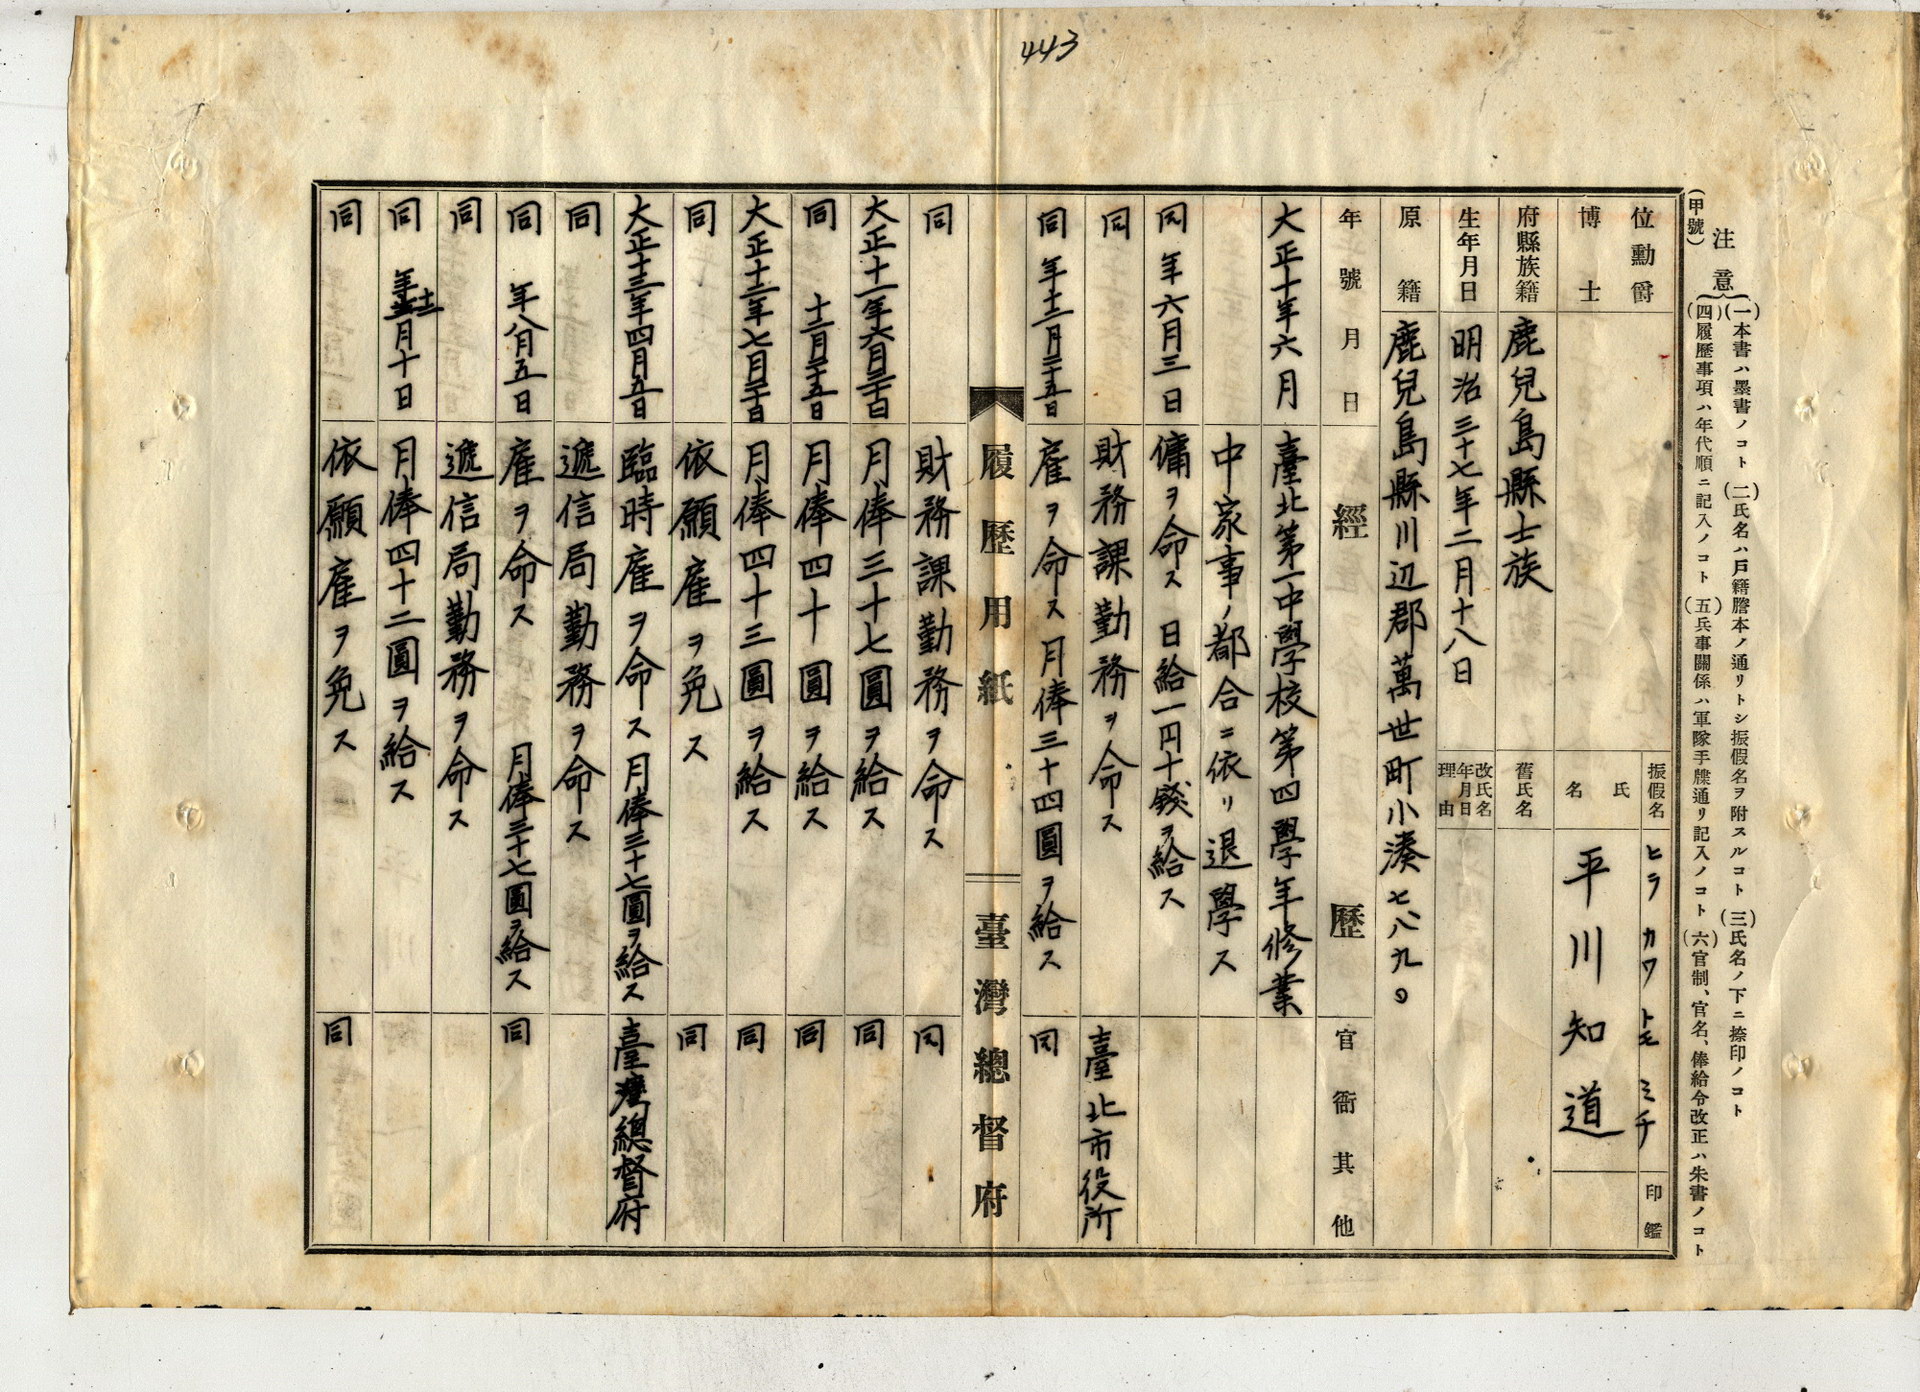 443
(甲號)
注意
(一)本書ハ墨書ノコト(二)氏名ハ戶籍謄本ノ通リトシ振假名ヲ附スルコト(三)氏名ノ下ニ捺印ノコト
(四)履歷事項ハ年代順ニ記入ノコト(五)兵事關係ハ軍隊手牒通リ記入ノコト(六)官制、官名、俸給令改正ハ朱書ノコト
位勳爵
博士
振假名 ヒラ カワ トモ ミチ
氏名 平川知道
印鑑
府縣族籍 鹿兒島縣士族
舊氏名
生年月日 明治三十七年二月十八日
改氏名年月日理由
原籍 鹿兒島縣川辺郡萬世町小湊七八九〇
年號月日 經歷 官衙其他
大正十年六月 臺北第一中學校第四學年修業
中家事ノ都合ニ依リ退學ス
同年六月三日 傭ヲ命ス 日給一円十錢ヲ給ス
同 財務課勤務ヲ命ス 臺北市役所
同年十二月二十五日 雇ヲ命ス 月俸三十四圓ヲ給ス 同
履歷用紙 臺灣總督府
同 財務課勤務ヲ命ス 同
大正十一年六月三十日 月俸三十七圓ヲ給ス 同
同 十二月二十五日 月俸四十圓ヲ給ス 同
大正十二年七月三十日 月俸四十三圓ヲ給ス 同
同 依願雇ヲ免ス 同
大正十三年四月五日 臨時雇ヲ命ス 月俸三十七圓ヲ給ス 臺灣總督府
同 遞信局勤務ヲ命ス
同年八月五日 雇ヲ命ス 月俸三十七圓ヲ給ス 同
同 遞信局勤務ヲ命ス
同年十二月十日 月俸四十二圓ヲ給ス
同 依願雇ヲ免ス 同